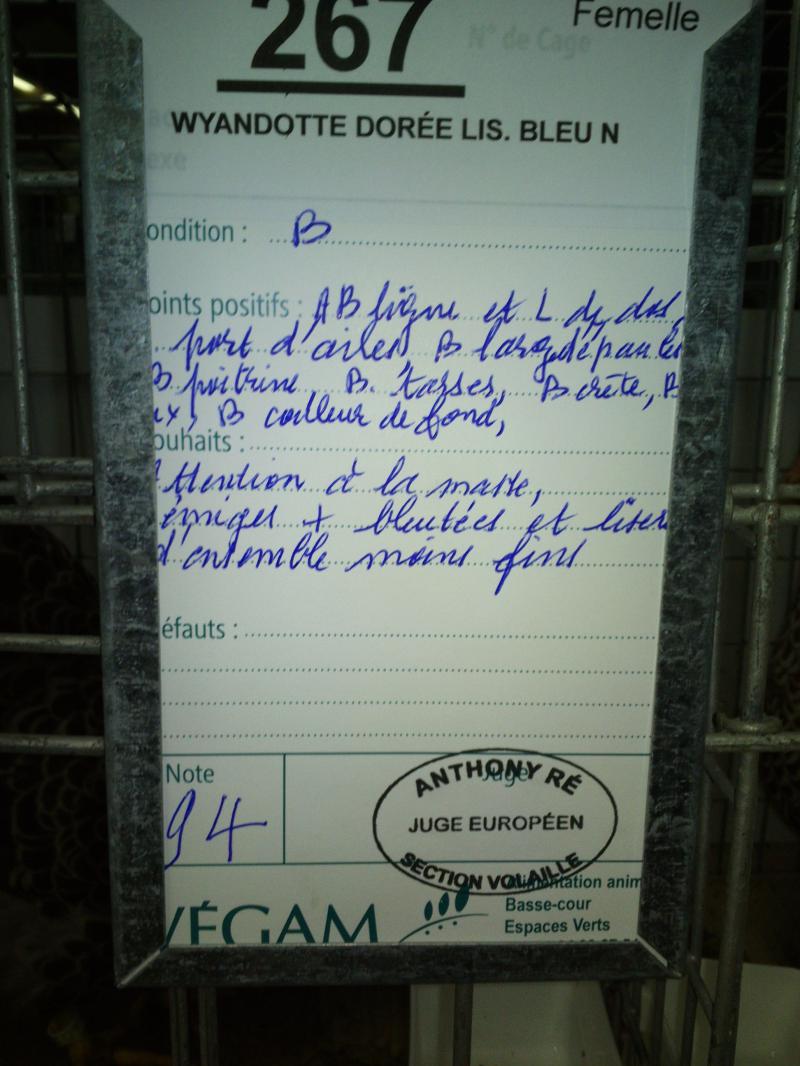 267
Femelle
N° de Cage
WYANDOTTE DORÉE LIS. BLEU N
exe
ondition : B
oints positifs : AB figne et L de dos,
port d'ailes B larg d'épaules
B poitrine B. Tarses, B crête, B
ux, B coulleur de fond,
ouhaits :
Attention à la masse,
émiges + bleutées et liser
d'ensemble moins fins
éfauts :
Note
94
Juge
ANTHONY RÉ
JUGE EUROPÉEN
SECTION VOLAILLE
VÉGAM
Alimentation anim
Basse-cour
Espaces Verts